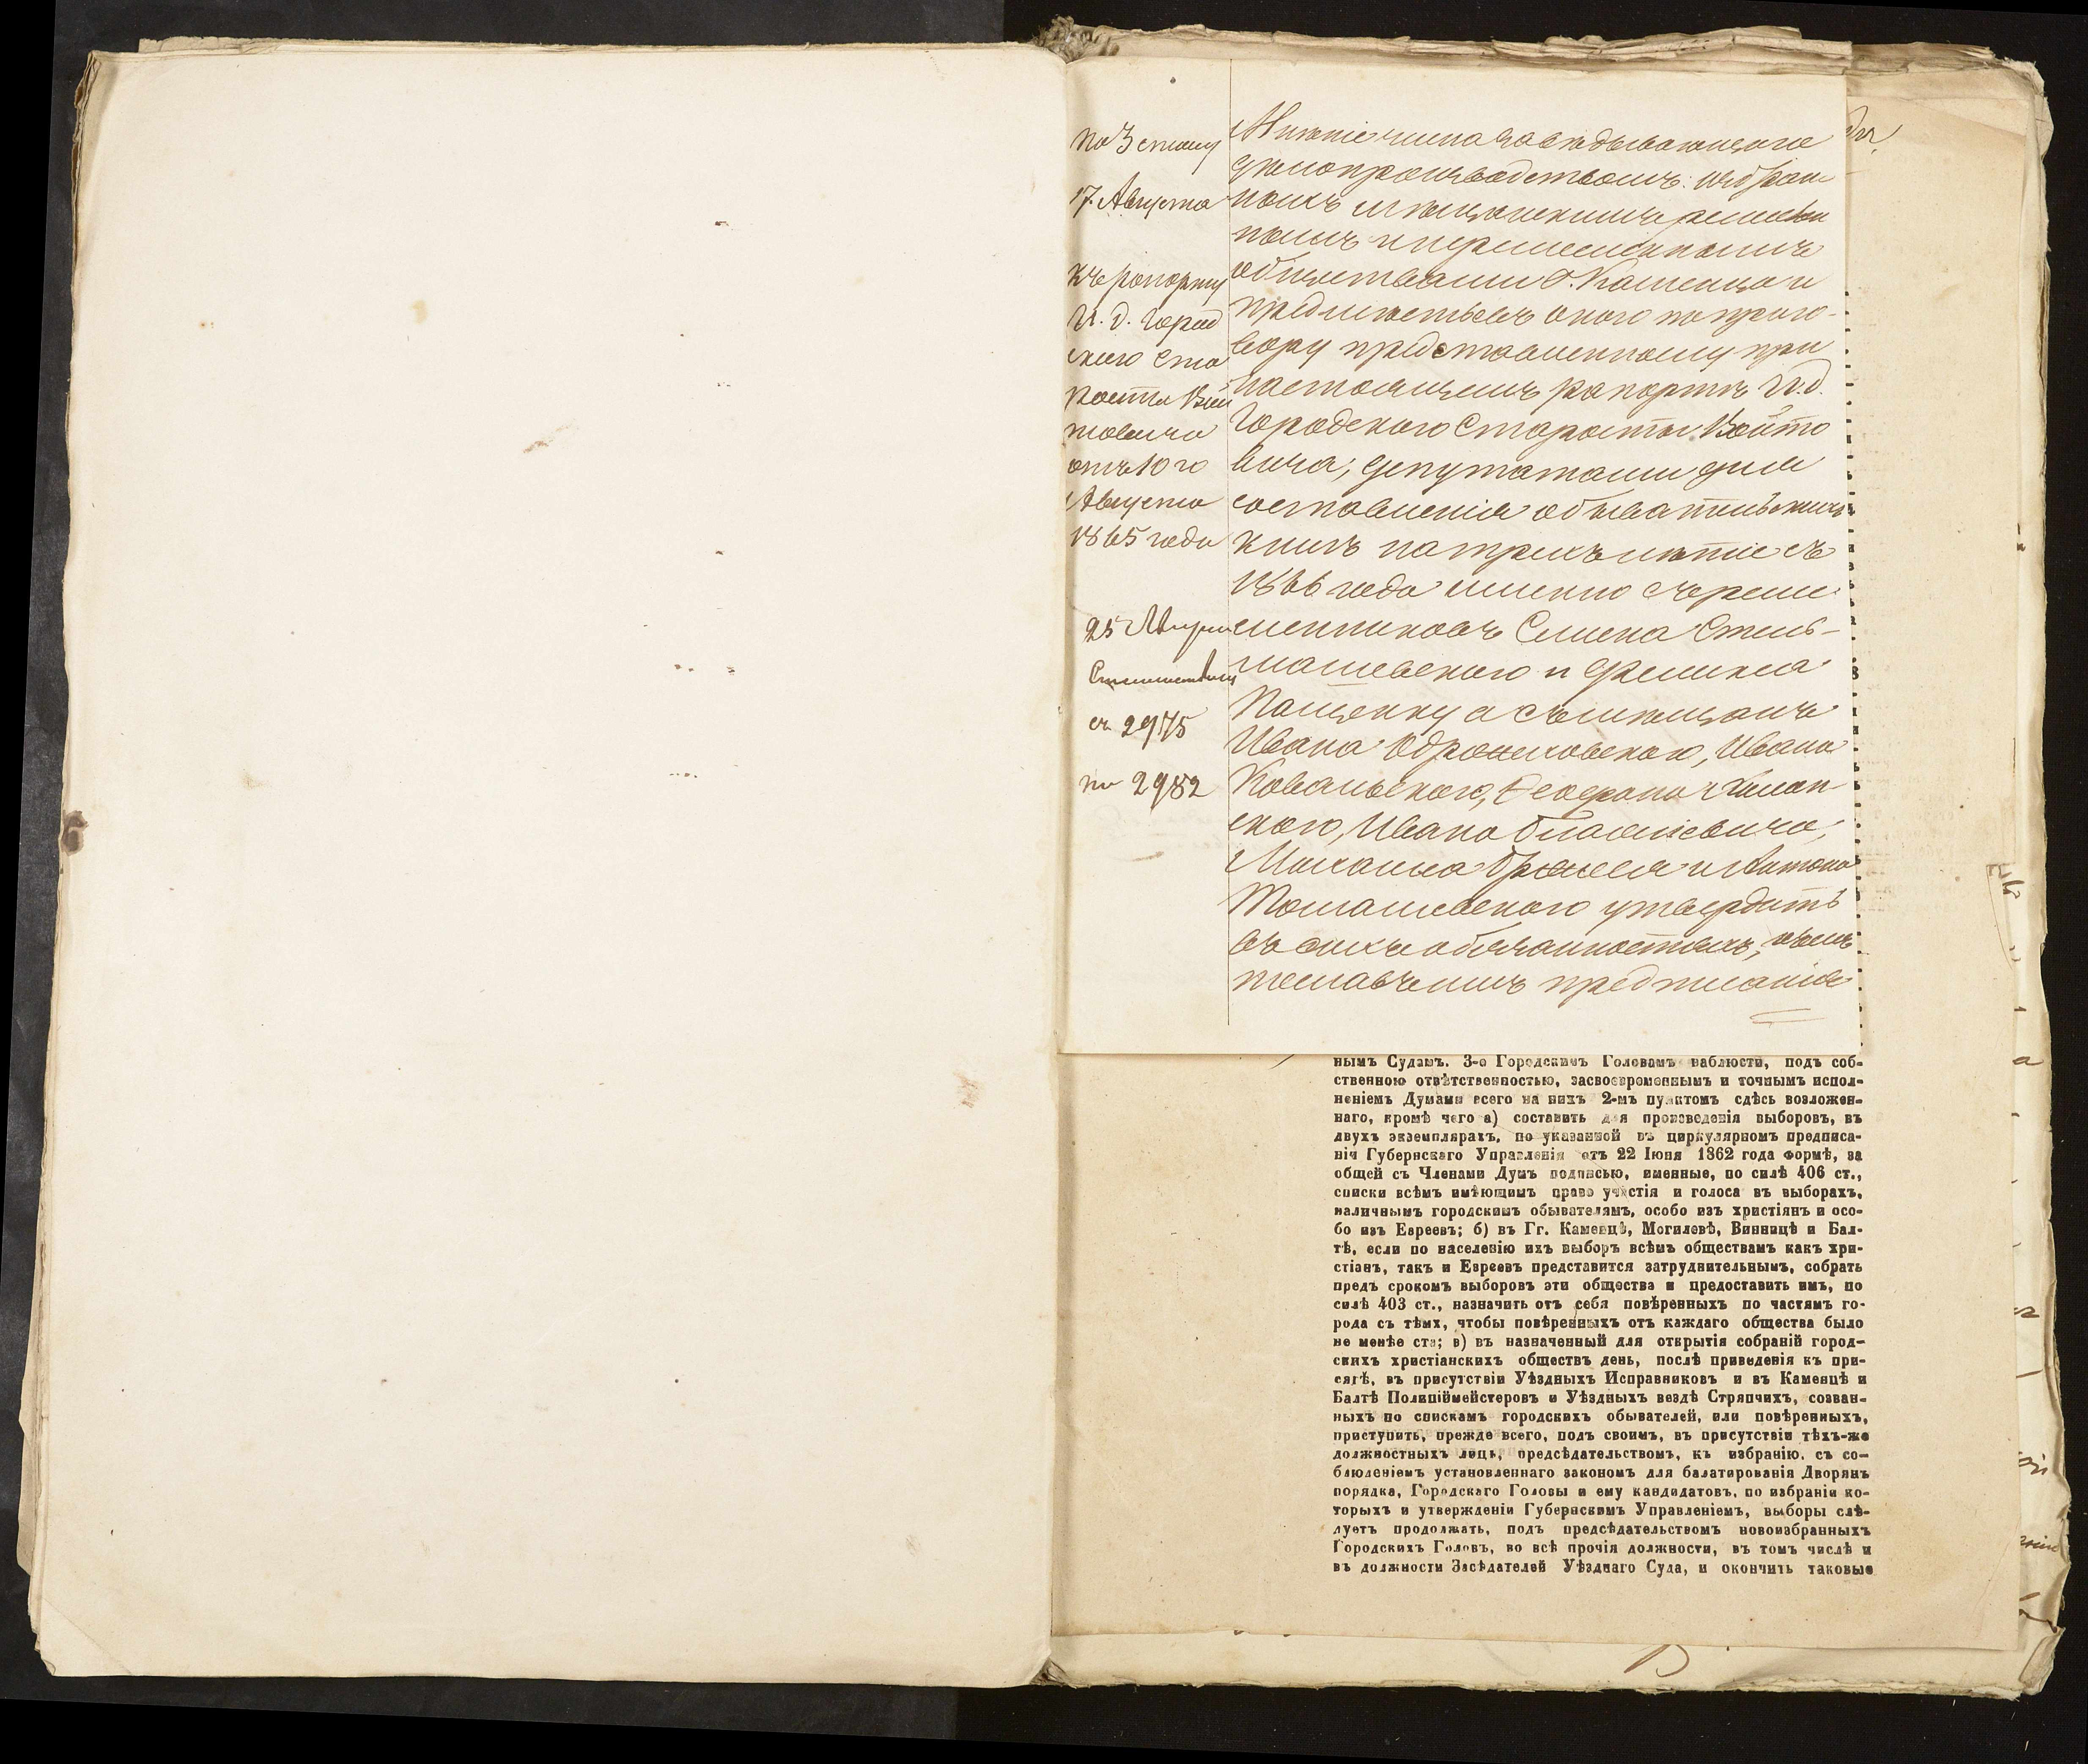 по 3 столу
17. Августа
къ рапорту
И. д. город
скаго Ста
росты Вой
товича
отъ 10 го
Августа
1865 года
25 Августа
съ 2975
по 2982
Мнѣніе члена завѣдывающаго
дѣлопроизводствомъ: избран
ныхъ мѣщанскимъ ремеслен
нымъ и
обществами г. Каменца и
предмѣстьевъ оного по приго-
вору представленному при
настоящемъ рапортѣ И. д.
Городскаго Старосты Войто
вича, депутатами для
составленія обывательскихъ
книгъ на трехъ лѣтіе съ
1866 года именно съ реме
сленниковъ Семена Стель-
маховскаго и Феликса
Пащенку а съ мѣщанъ
Ивана Ивана
Ковальскаго,
скаго, Ивана
Михаила и Антона
Томашевскаго утвердить
въ сихъ обязанностяхъ, о чемъ
предписанія
нымъ Судамъ. 3-е Городскимъ Головамъ наблюсти, подъ соб-
ственною отвѣтственностью, засвоевременнымъ и точнымъ испол-
неніемъ Думами всего на нихъ 2-мъ пунктомъ сдѣсь возложен-
наго, кромѣ чего а) составить для произведенія выборовъ, въ
двухъ экземплярахъ, по указанной въ циркулярномъ предписа-
ніи Губернскаго Управленія отъ 22 Іюня 1862 года формѣ, за
общей съ Членами Думъ подписью, именные, по силѣ 406 ст.,
списки всѣмъ имѣющимъ право участія и голоса въ выборахъ,
наличнымъ городскимъ обывателямъ, особо изъ христіянъ и осо-
бо изъ Евреевъ; б) въ Гг. Каменцѣ, Могилевѣ, Винницѣ и Бал-
тѣ, если по населенію ихъ выборъ всѣмъ обществамъ какъ хри-
стіанъ, такъ и Евреевъ представится затруднительнымъ, собрать
предъ срокомъ выборовъ эти общества и предоставить имъ, по
силѣ 403 ст., назначить отъ себя повѣренныхъ по частямъ го-
рода съ тѣмъ, чтобы повѣренныхъ отъ каждаго общества было
не менѣе ста; в) въ назначенный для открытія собраній город-
скихъ христіанскихъ обществъ день, послѣ приведенія къ при-
сягѣ, въ присутствіи Уѣздныхъ Исправниковъ и въ Каменцѣ и
Балтѣ Полиціймейстеровъ и Уѣздныхъ вездѣ Стряпчихъ, созван-
ныхъ по спискамъ городскихъ обывателей, или повѣренныхъ,
приступить, прежде всего, подъ своимъ, въ присутствіи тѣхъ-же
должностныхъ лицъ, предсѣдательствомъ, къ избранію, съ со-
блюденіемъ установленнаго закономъ для балатированія Дворянъ
порядка, Городскаго Головы и ему кандидатовъ, по избраніи ко-
торыхъ и утвержденіи Губернскимъ Управленіемъ, выборы слѣ-
дуетъ продолжать, подъ предсѣдательствомъ новоизбранныхъ
Городскихъ Головъ, во всѣ прочія должности, въ томъ числѣ и
въ должности Засѣдателей Уѣзднаго Суда, и окончить таковые